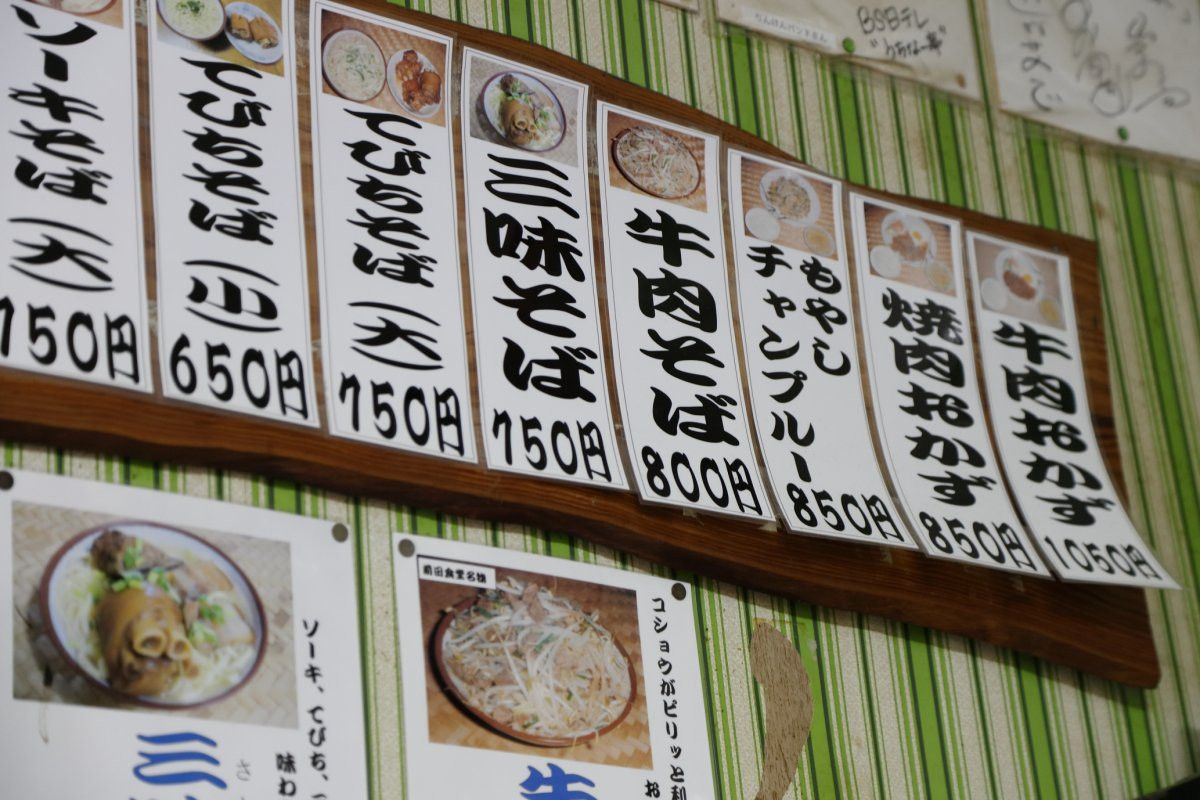 ソーキそば(大)
750円
てびちそば(小)
650円
てびちそば(大)
750円
三味そば
750円
牛肉そば
800円
もやし
チャンプルー
850円
焼肉おかず
850円
牛肉おかず
1050円
りんけんバンドさん
BSBテレ
ソーキ、てびち、
味わ
三
さ
前田食堂名物
コショウがピリッと利
お
牛